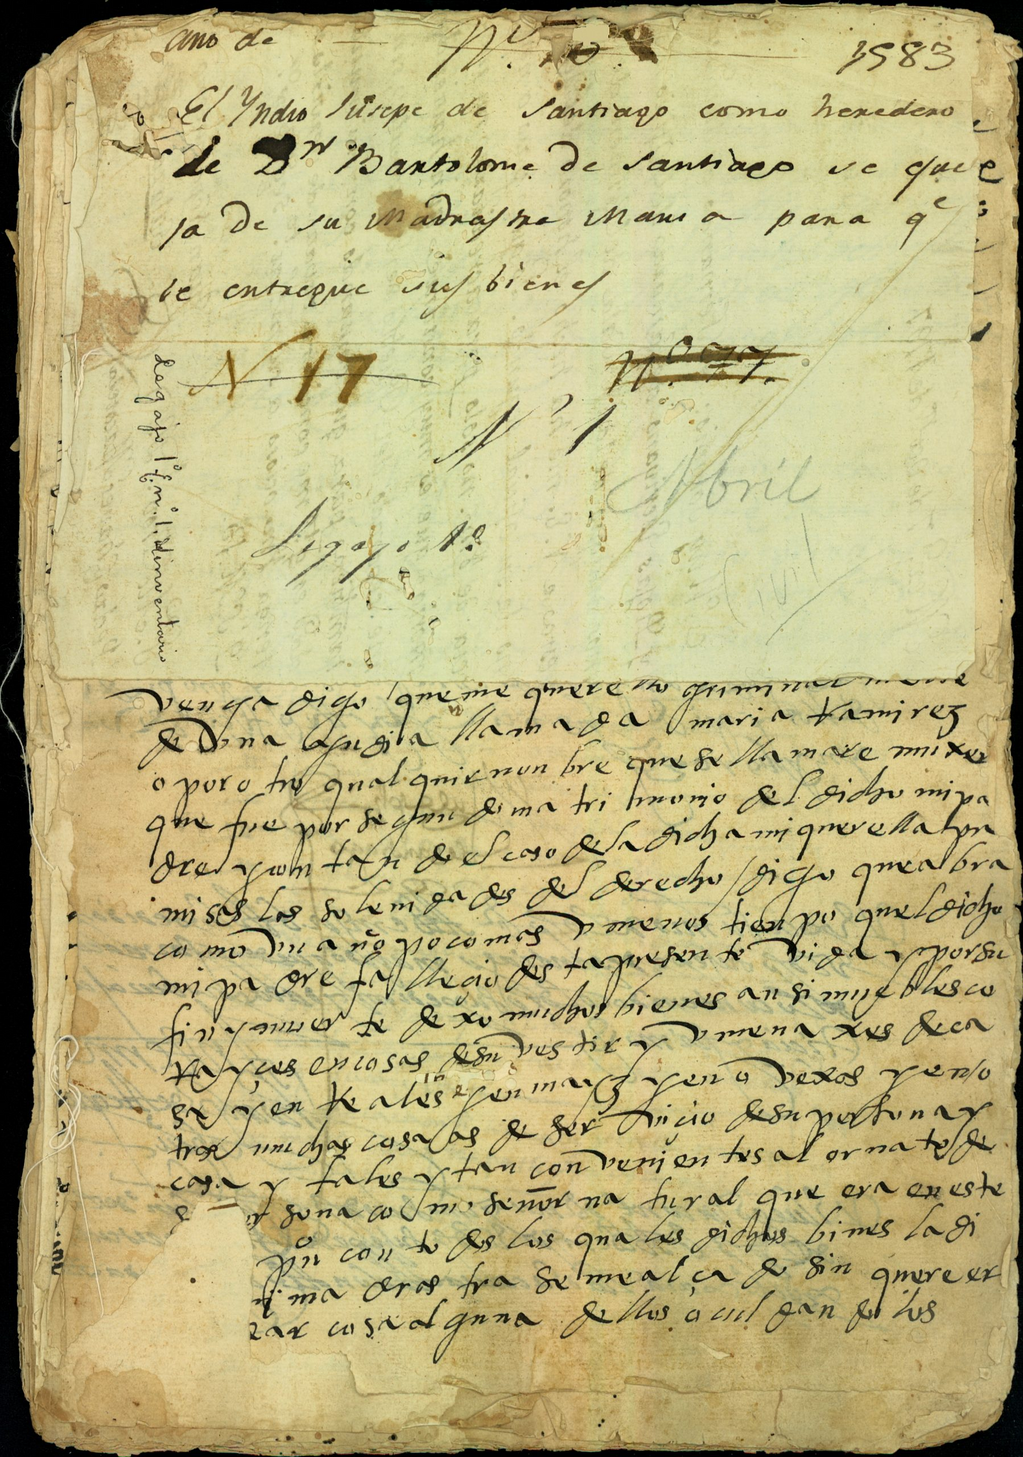 año de 1583
El Yndio Jusepe de Santiago como heredero
de Dn Bartolome de Santiago se que
ja de su Madrastra Maria para qe
le entregue sus bienes
N 17
No
N 1
Abril
Legajo 1o
Civil
Legajo 1o n.o 1. inventario
venga digo que me querello criminal mente
de una yndia llamada maria Ramirez
o por otro qualquier nonbre que se llamare muxer
que fue por segundo matrimonio del dicho mi pa
dre y contando el caso de la dicha mi querella pre
misas las solenidades del derecho / digo que abra
como un año poco mas o menos tienpo quel dicho
mi padre falleçio desta presente vida y por su
fin y muerte dexo muchos bienes ansi muebles co
rayçes en cosas de su vestir y omenaxes de ca
sa y en reales y en mayz y en ovexas y en o
tras muchas cosas de serviçio de su persona y
casa y tales y tan convenientes al ornato de
persona como señor natural que era en este
con todos los quales dichos bienes la di
mi madrastra se me a alçado sin querer
cosa alguna dellos ocultandolos